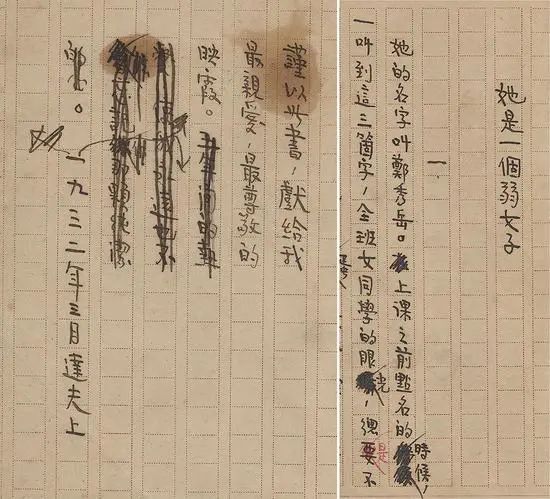 她是一個弱女子
一
她的名字叫鄭秀岳。上課之前點名的時候,
一叫到這三箇字,全班女同學的眼光,總是要不
謹以此書,獻給我
最親愛,最尊敬的
映霞。
一九三二年三月達夫上